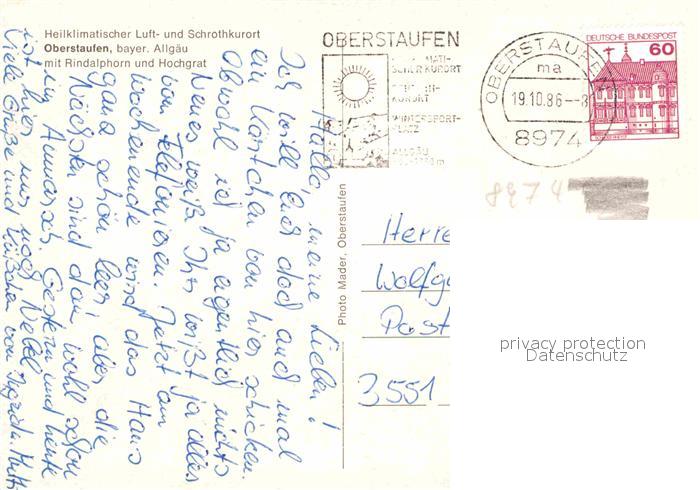 Heilklimatischer Luft- und Schrothkurort
Oberstaufen, bayer. Allgäu
mit Rindalphorn und Hochgrat
OBERSTAUFEN
SCHER KURORT
KURORT
WINTERSPORT-
PLATZ
ALLGÄU
OBERSTAUFEN
ma
19.10.86--8
8974
DEUTSCHE BUNDESPOST
60
8974
Hallo, meine Lieben!
Ich will Euch doch auch mal
ein Kärtchen von hier schicken.
Obwohl ich ja eigentlich nichts
Neues weiß. Ihr wißt ja alles
vom Telefonieren. Jetzt am
Wochenende wird das Haus
ganz schön leer, aber die
Nächsten sind dann wohl schon
im Anmarsch. Gestern und heute
ist hier nur noch Nebel.
Viele Grüße und Küßchen von
Photo Mader, Oberstaufen
Herre
Wolfg
Post
3551
privacy protection
Datenschutz